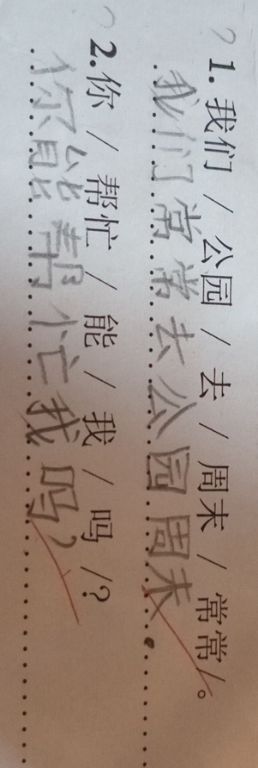 1. 我们 / 公园 / 去 / 周末 / 常常/。
我们常常去公园周末.
2. 你 / 帮忙 / 能 / 我 / 吗 /?
你能帮忙我吗?